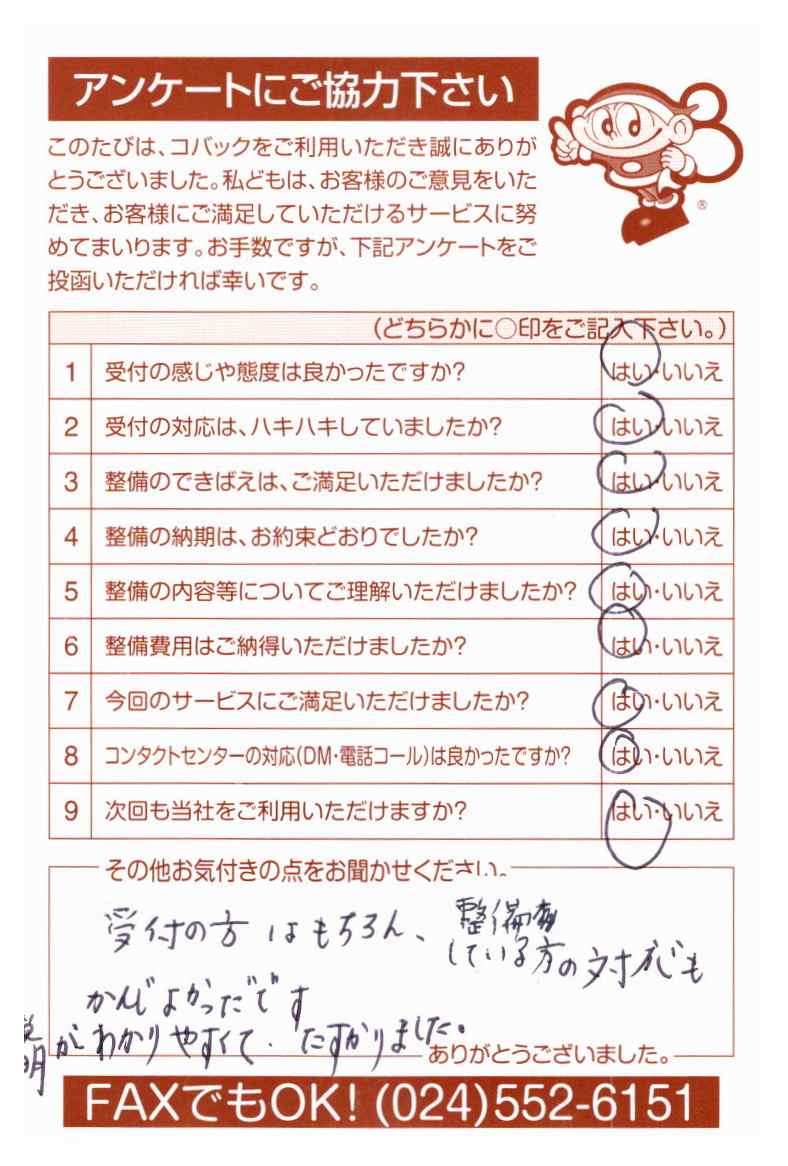 アンケートにご協力下さい
このたびは、コバックをご利用いただき誠にありが
とうございました。私どもは、お客様のご意見をいた
だき、お客様にご満足していただけるサービスに努
めてまいります。お手数ですが、下記アンケートをご
投函いただければ幸いです。
®
(どちらかに○印をご記入下さい。)
1 受付の感じや態度は良かったですか? はい・いいえ
2 受付の対応は、ハキハキしていましたか? はい・いいえ
3 整備のできばえは、ご満足いただけましたか? はい・いいえ
4 整備の納期は、お約束どおりでしたか? はい・いいえ
5 整備の内容等についてご理解いただけましたか? はい・いいえ
6 整備費用はご納得いただけましたか? はい・いいえ
7 今回のサービスにご満足いただけましたか? はい・いいえ
8 コンタクトセンターの対応(DM・電話コール)は良かったですか? はい・いいえ
9 次回も当社をご利用いただけますか? はい・いいえ
その他お気付きの点をお聞かせください。
受付の方はもちろん、整備
している方の対応も
かんじよかったです
説明がわかりやすくて、たすかりました。
ありがとうございました。
FAXでもOK! (024)552-6151